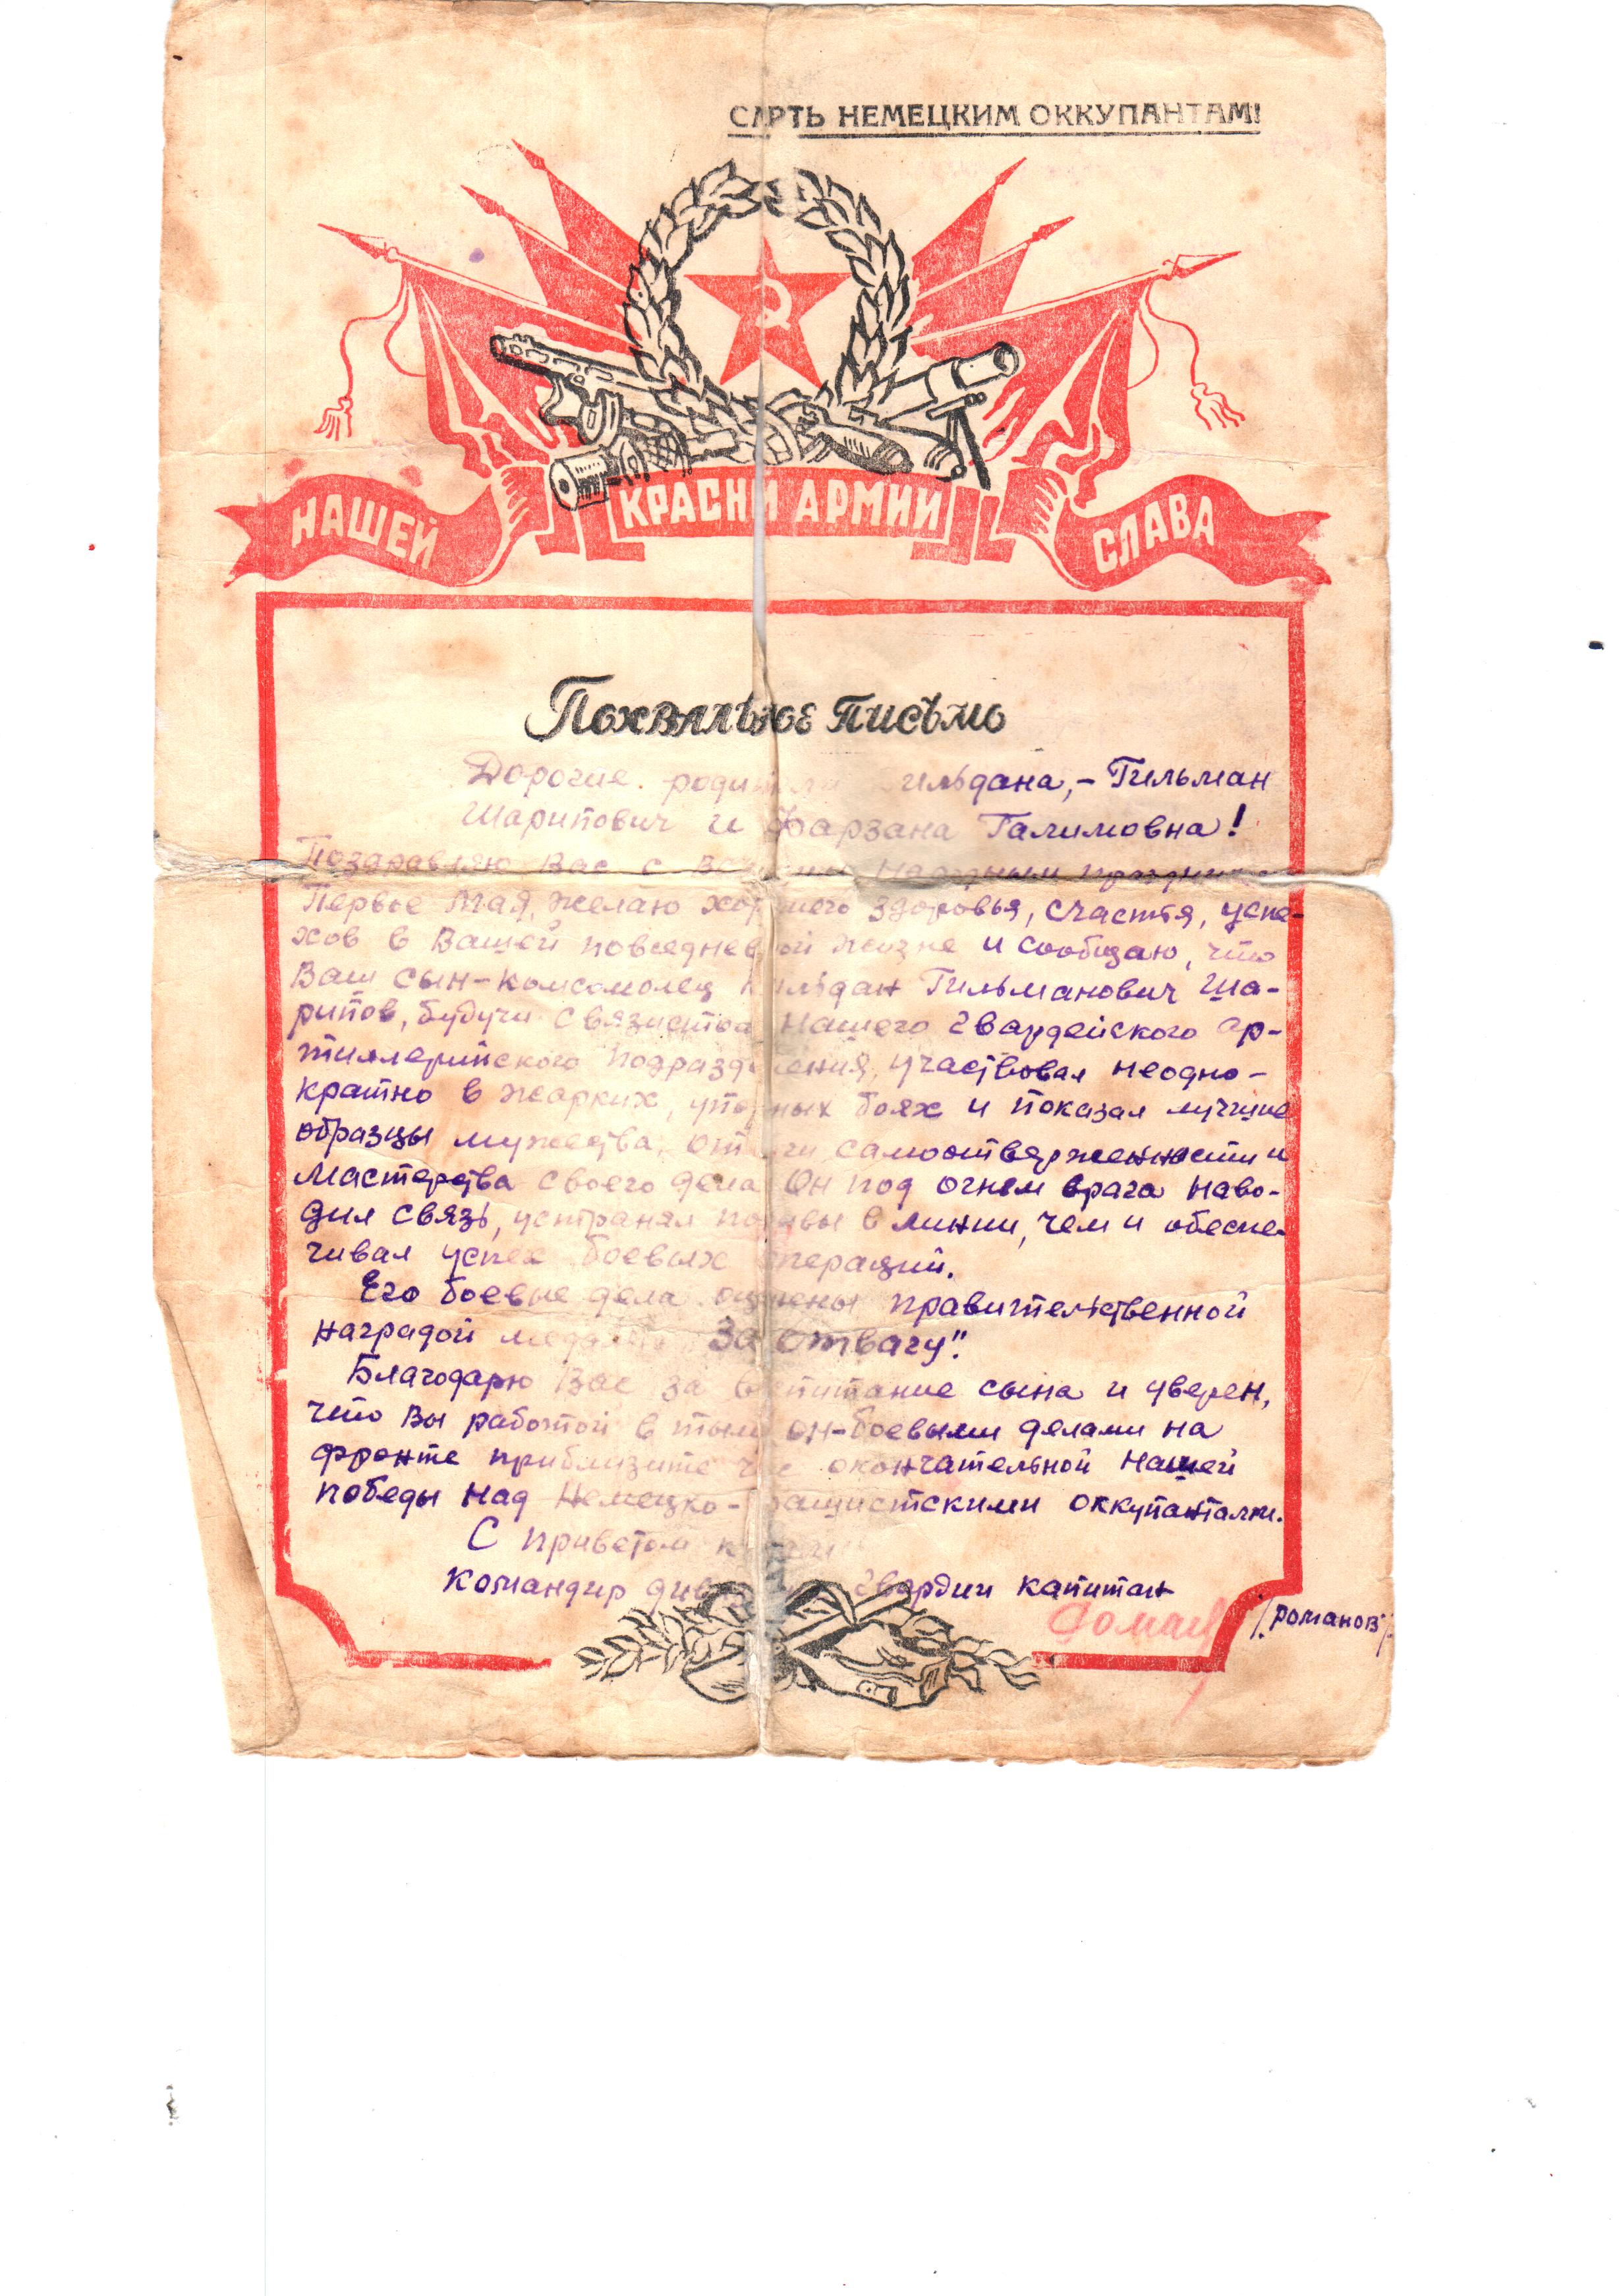 СМЕРТЬ НЕМЕЦКИМ ОККУПАНТАМ!
НАШЕЙ КРАСНОЙ АРМИИ СЛАВА
Похвальное письмо
Дорогие родители Гильдана, – Гильман
Шарипович и Фарзана Галимовна!
Поздравляю Вас с Народным праздником
Первое Мая, желаю хорошего здоровья, счастья, успе-
хов в Вашей повседневной жизне и сообщаю, что
Ваш сын-комсомолец Гильдан Гильманович Ша-
рипов, будучи связистом нашего гвардейского ар-
тиллерийского подразделения, участвовал неодно-
кратно в жарких, упорных боях и показал лучшие
образцы мужества, отваги, самоотверженности и
мастерства своего дела. Он под огнем врага наво-
дил связь, устранял порывы в линии, чем и обеспе-
чивал успех боевых операций.
Его боевые дела оценены правительственной
наградой медалью „За отвагу".
Благодарю Вас за воспитание сына и уверен,
что Вы работой в тылу он-боевыми делами на
фронте приблизите час окончательной нашей
победы над немецко-фашистскими оккупантами.
С приветом к Вам
Командир дивизиона гвардии капитан
/Романов/